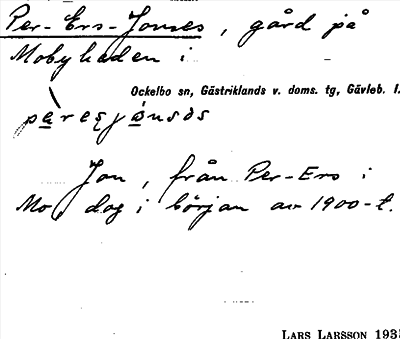 Per-Ers-Jonses, gård på
Mobyheden i
Ockelbo sn, Gästriklands v. doms. tg, Gävleb. l.
Jon, från Per-Ers i
Mo, dog i början av 1900-t.
LARS LARSSON 1935